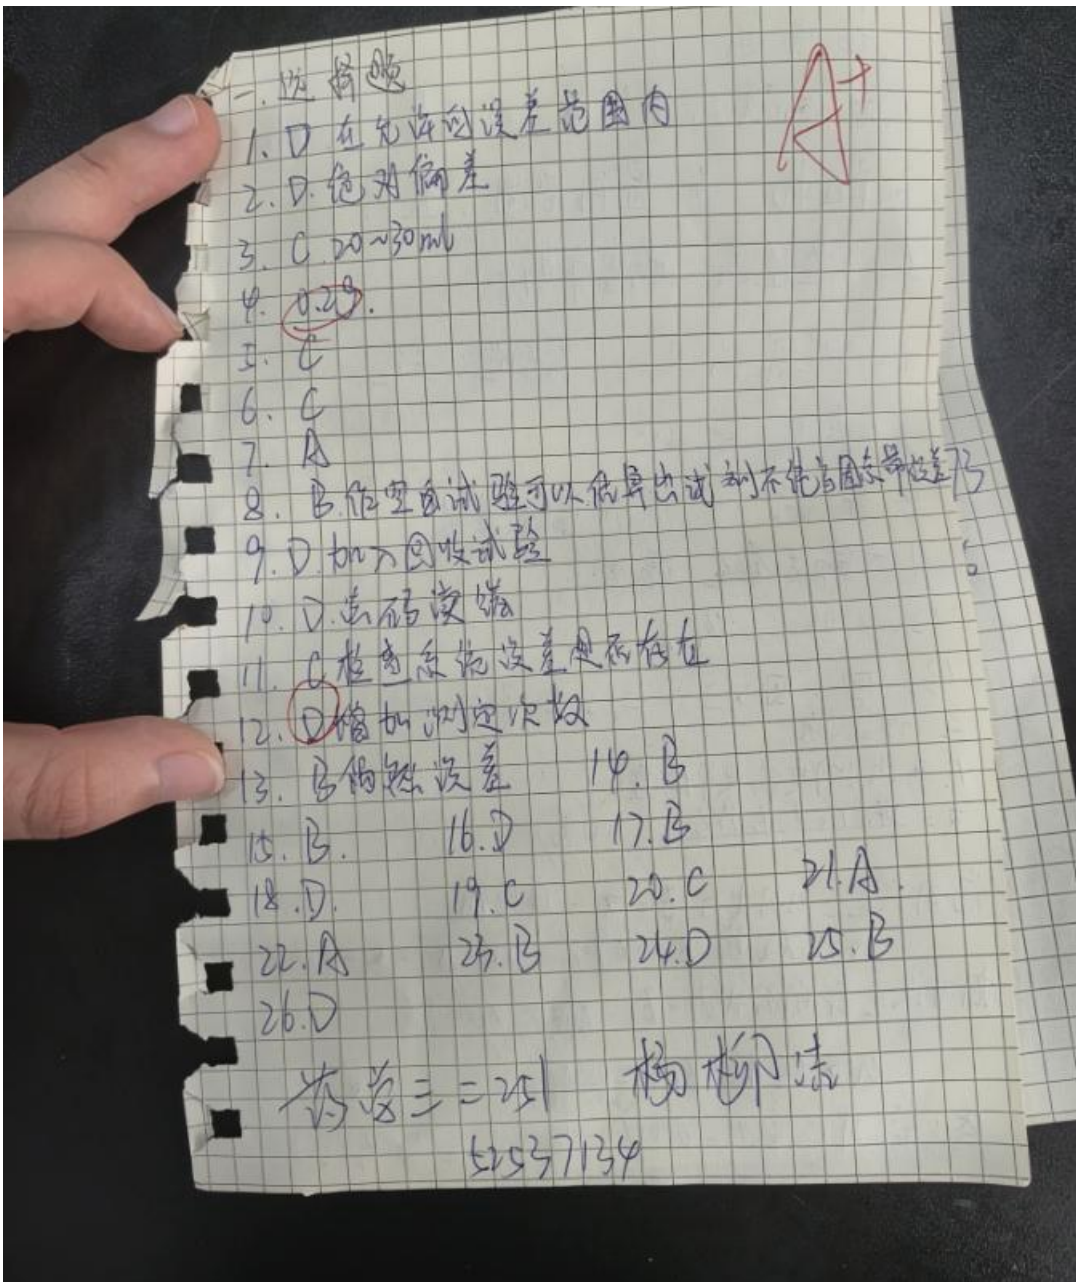 一. 选择题
A+
1. D 在允许的误差范围内
2. D. 绝对偏差
3. C. 20~30ml
4. 0.2g.
5. C
6. C
7. A
8. B. 作空白试验可以估算出试剂不纯
9. D. 加入回收试验
10. D. 砝码
11. C 检查系统误差是否存在
12. D 增加测定次数
13. B 偶然误差 14. B
15. B. 16. D 17. B
18. D. 19. C 20. C 21. A.
22. A 23. B 24. D 25. B
26. D
药 251 杨柳
52537134